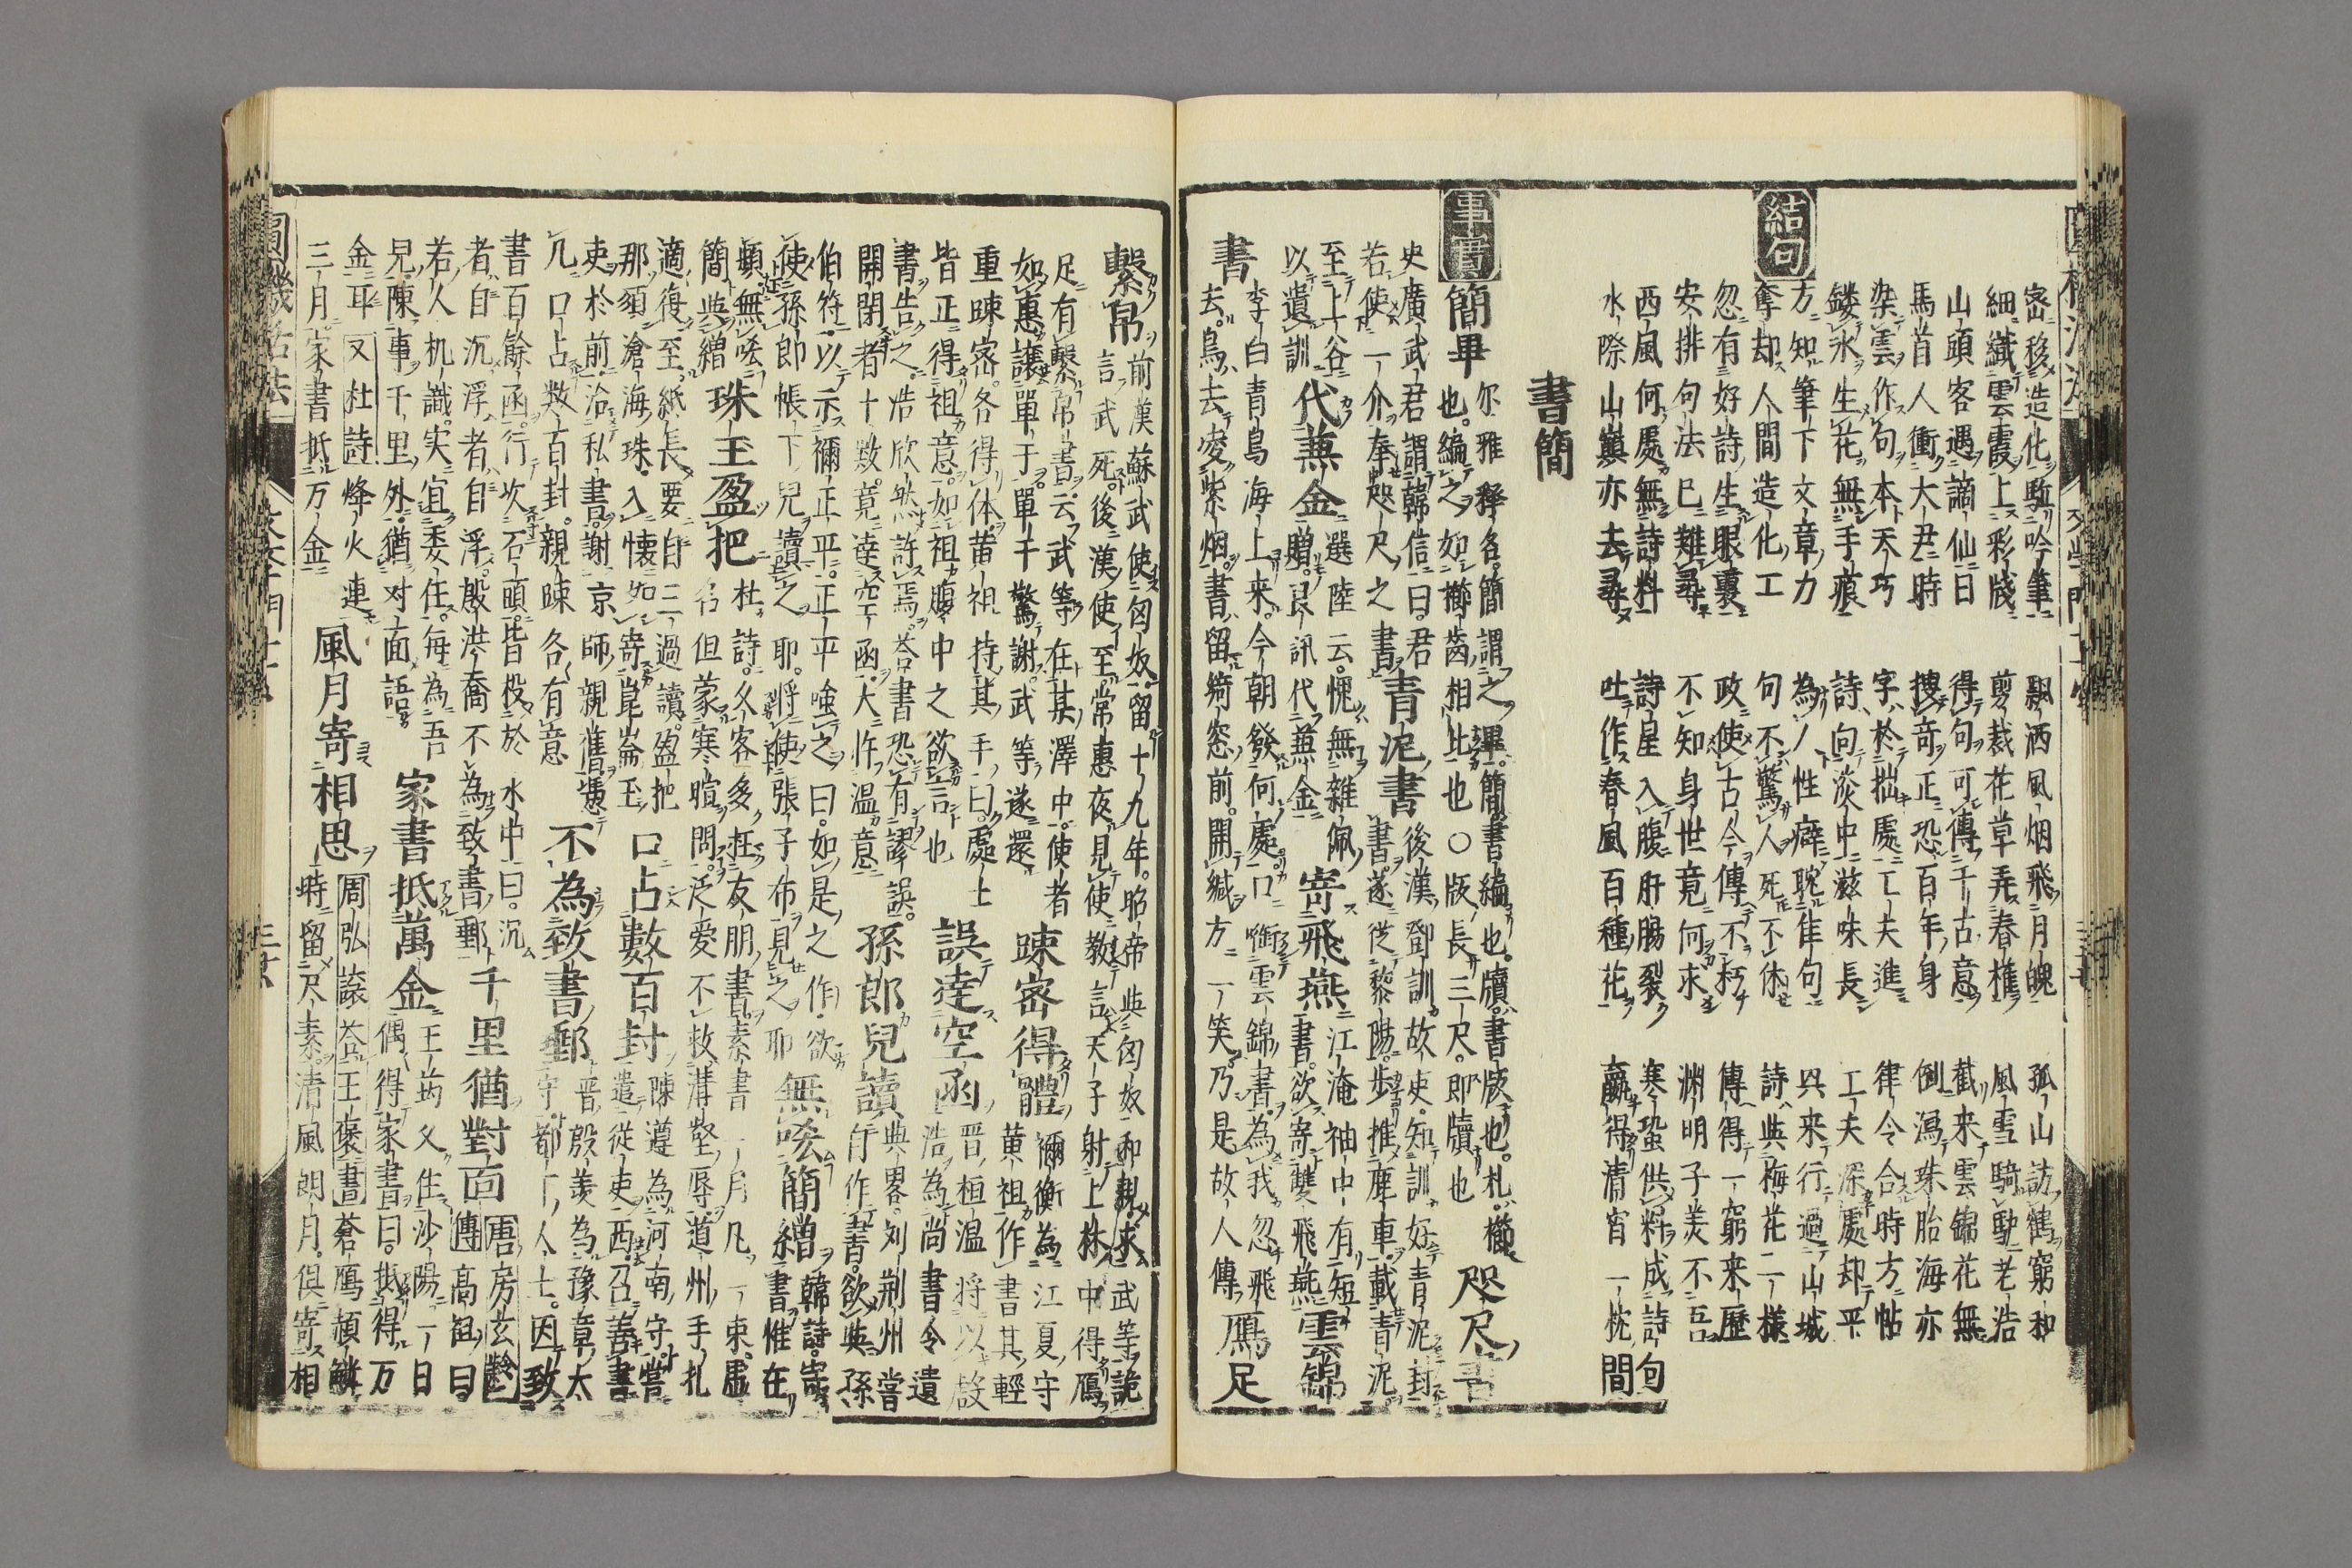 密移造化驅吟筆　飄洒風烟飛月魄　孤山訪鶴窮和
細纖雲霞上彩牋　剪裁花草弄春樵　風雪騎馳老浩
山頭客遇謫仙日　得句可傳千古意　截来雲錦花無
馬首人衝大尹時　搜奇正恐百年身　倒瀉珠胎海亦
染雲作句本天巧　字於拙處工夫進　律令合時方帖
鏤氷生花無手痕　詩向淡中滋味長　工夫深處却平
方知筆下文章力　為人性癖耽佳句　興来行過山城
結句
奪却人間造化工　句不驚人死不休　詩與梅花一様
忽有好詩生眼裏　政使古今傳不朽　傳得一窮来歷
安排句法已難尋　不知身世竟何求　渊明子美不吾
西風何處無詩料　詩星入腹肝腸裂　寒蛩供料成詩句
水際山巔亦去尋　吐作春風百種花　贏得清宵一枕間
書簡
事實
簡畢　尔雅釋名簡謂之畢簡書編也牘書版也札櫛
也編之如櫛齒相比也〇版長三尺即牘也　咫尺書
史廣武君謂韓信曰君　青泥書　後漢鄧訓故吏知訓好青泥封
若使一介奉咫尺之書　書遂従黎陽歩推鹿車載青泥
至上谷　代蒹金贈　選陸云愧無雜佩　寄飛燕　江淹袖中有短
以遺訓　良訊代蒹金　書欲寄雙飛燕　雲錦
書　李白青鳥海上来今朝發何處口銜雲錦書為我忽飛
去鳥去凌紫烟書留綺窓前開緘方一笑乃是故人傳　鴈足
繫帛　前漢蘇武使匈奴留十九年昭帝與匈奴和親求武等詭
言武死後漢使至常惠夜見使教言天子射上林中得鴈
足有繫帛書云武等在某澤中使者　踈密得體　禰衡為江夏守
如惠讓單于單于驚謝武等遂還　黄祖作書其輕
重踈密各得体黄祖持其手曰處士　誤達空函　晋桓温将以
皆正得祖意如祖腹中之欲言也　浩為尚書令遺
書告之浩欣然許焉荅書恐有謬誤　孫郎兒讀　典畧刘荆州嘗
開閉者十數竟達空函大忤温意　自作書欲與孫
伯符以示禰正平正平嗤之曰如是之作欲　無唹簡繒　韓詩
使孫郎帳下兒讀之耶将使張子布見之耶　書惟在
頻無唹　珠玉盈把　杜詩久客多枉友朋書素書一月凡一束虚
簡與繒　名但蒙寒暄問泛愛不救溝壑辱道州手札
適復至紙長要自三過讀盈把　口占數百封　陳遵為河南守嘗
那須滄海珠入懐如寄崑崙玉　遣従吏西召善書
吏於前治私書謝京師親舊憑　不為致書郵　晋殷羡為豫章太
几口占數百封親踈各有意　守都下人士因致
書百餘函行次石頭皆投於水中曰沉　千里猶對面　唐房玄齡
者自沉浮者自浮殷洪喬不為致書郵　傳高祖曰
若人机識実宜委任每為吾　家書抵萬金　王筠父住沙陽一日
兒陳事千里外猶对面語　偶得家書曰抵得万
金耳　又杜詩烽火連　風月寄相思　周弘讓荅王褒書蒼鴈頳鱗
三月家書抵万金　時留尺素清風朗月倶寄相